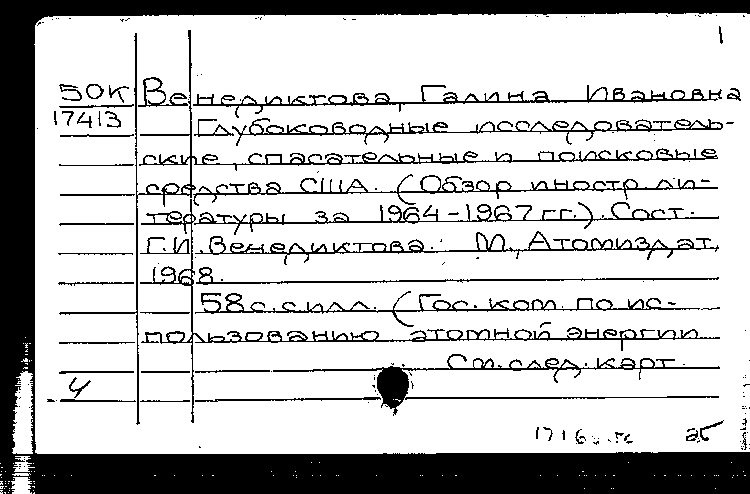 1
50К Венедиктова, Галина Ивановна
17413 Глубоководные исследователь-
ские, спасательные и поисковые
средства США. (Обзор иностр. ли-
тературы за 1964-1967 гг.). Сост.
Г.И. Венедиктова. М., Атомиздат,
1968.
58 с. с илл. (Гос. ком. по ис-
пользованию атомной энергии
См. след. карт.